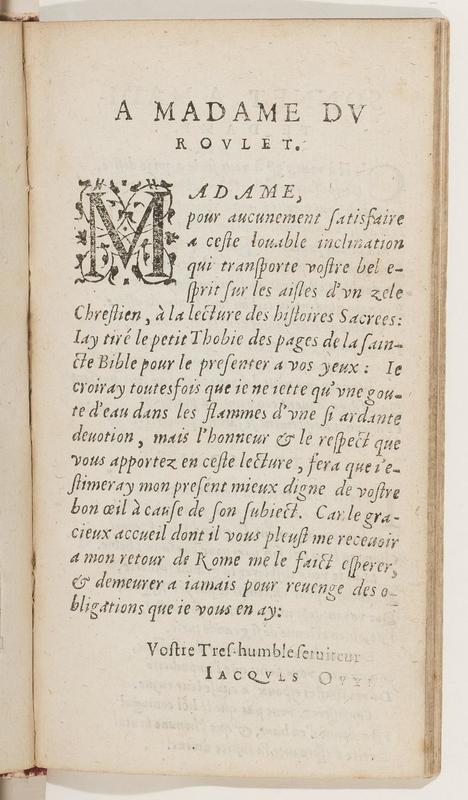 A MADAME DV
ROVLET.
MADAME,
pour aucunement ſatisfaire
a ceſte louable inclination
qui tranſporte voſtre bel e-
ſprit ſur les aiſles d'vn zele
Chreſtien, à la lecture des hiſtoires Sacrees:
Iay tiré le petit Thobie des pages de la ſain-
cte Bible pour le preſenter a vos yeux: Ie
croiray toutesfois que ie ne iette qu'vne gou-
te d'eau dans les flammes d'vne ſi ardante
deuotion, mais l'honneur & le reſpect que
vous apportez en ceſte lecture, fera que i'e-
ſtimeray mon preſent mieux digne de voſtre
bon œil à cauſe de ſon ſubiect. Car le gra-
cieux accueil dont il vous pleuſt me receuoir
a mon retour de Rome me le faict eſperer,
& demeurer a iamais pour reuenge des o-
bligations que ie vous en ay:
Voſtre Treſ-humble ſeruiteur
IACQVES